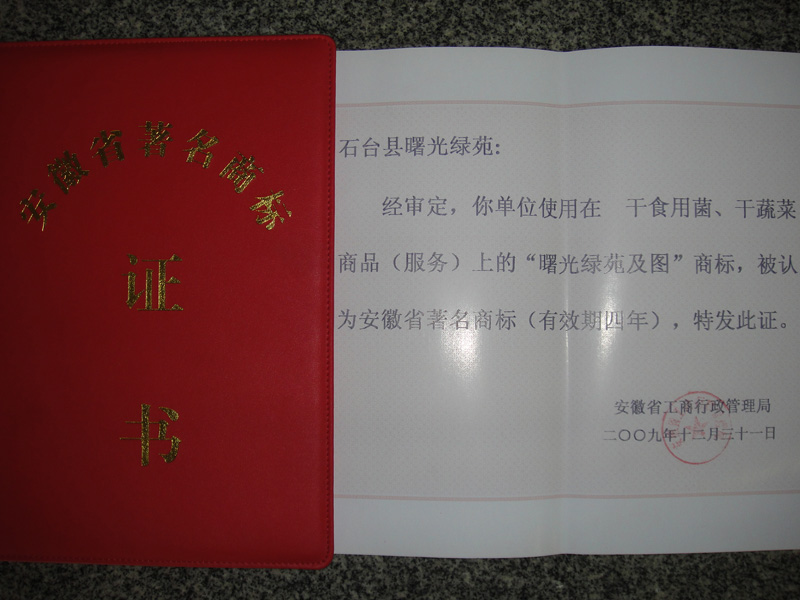 安徽省著名商标
证
书
石台县曙光绿苑:
经审定，你单位使用在 干食用菌、干蔬菜
商品（服务）上的“曙光绿苑及图”商标，被认
为安徽省著名商标（有效期四年），特发此证。
安徽省工商行政管理局
二〇〇九年十二月三十一日